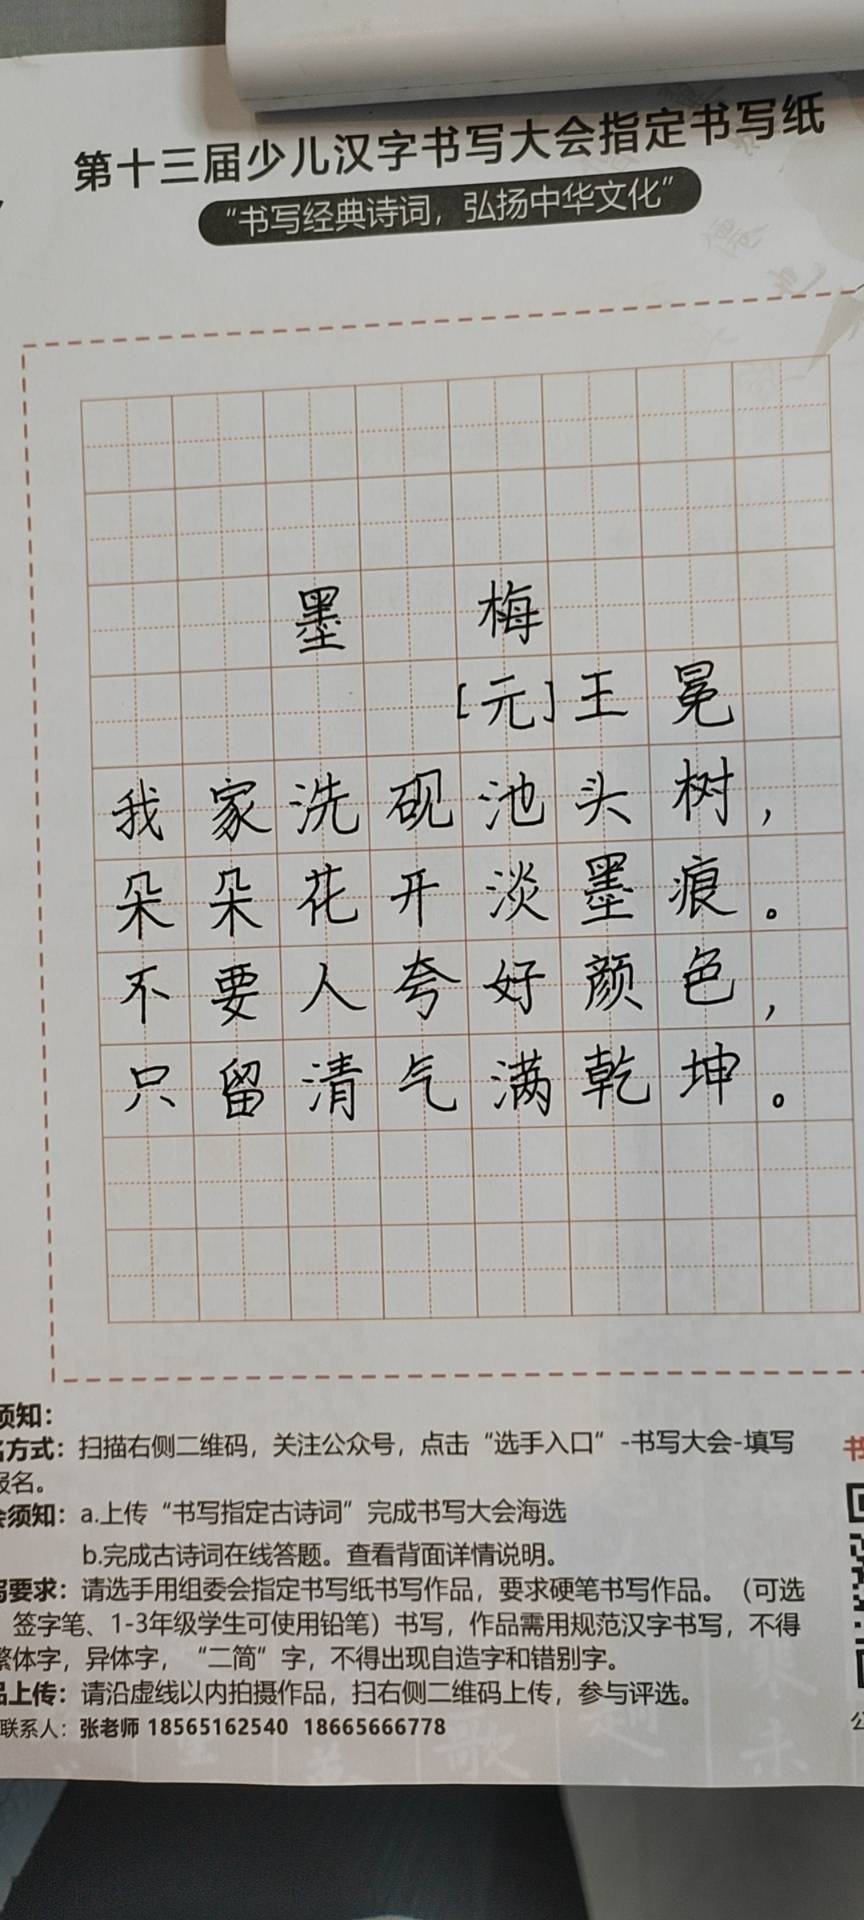 第十三届少儿汉字书写大会指定书写纸
“书写经典诗词，弘扬中华文化”
墨 梅
[元]王 冕
我家洗砚池头树，
朵朵花开淡墨痕。
不要人夸好颜色，
只留清气满乾坤。
须知：
名方式：扫描右侧二维码，关注公众号，点击“选手入口”-书写大会-填写
报名。
会须知：a.上传“书写指定古诗词”完成书写大会海选
b.完成古诗词在线答题。查看背面详情说明。
写要求：请选手用组委会指定书写纸书写作品，要求硬笔书写作品。（可选
签字笔、1-3年级学生可使用铅笔）书写，作品需用规范汉字书写，不得
繁体字，异体字，“二简”字，不得出现自造字和错别字。
品上传：请沿虚线以内拍摄作品，扫右侧二维码上传，参与评选。
联系人：张老师 18565162540 18665666778
书
公